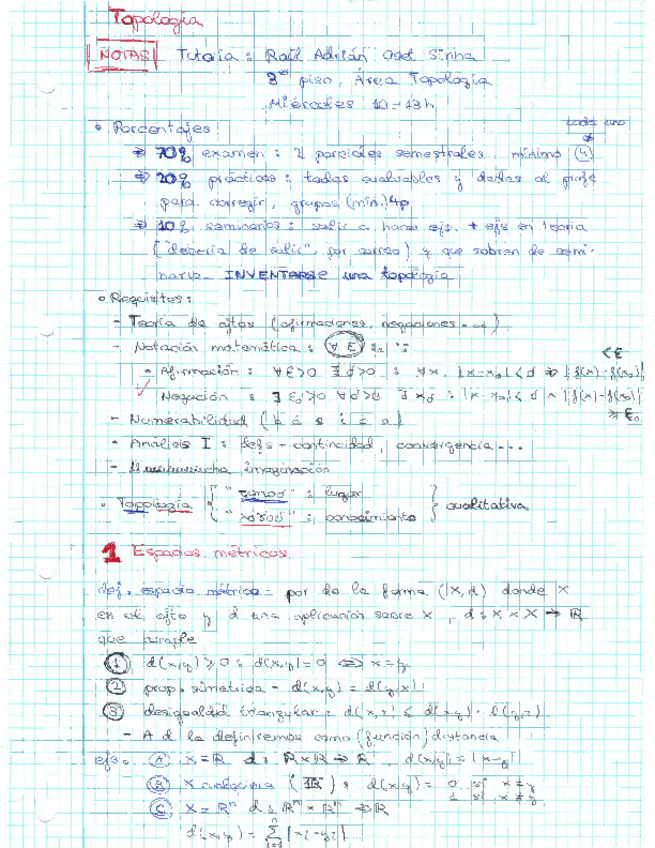 Topología
NOTAS Tutoría: Raúl Adrián
3er piso, Área Topología
Miércoles 10-13h
• Porcentajes cada uno
→ 70% examen: 2 parciales semestrales, mínimo (4)
→ 20% prácticas: todas evaluables y dadas al profe
para corregir, grupos (mín.) 4p
→ 10% seminarios: salir a hacer ejs. + ejs en teoría
("debería de salir", por correo) y que sobren de semi-
nario. INVENTARSE una topología
• Requisitos:
- Teoría de cjtos (afirmaciones, negaciones...)
- Notación matemática: ∀ ∃
• Afirmación: ∀ε>0 ∃d>0 : ∀x, |x-x₀|<d ⇒ |f(x)-f(x₀)| <ε
Negación : ∃ε₀>0 ∀d>0 ∃xd : |x-x₀|<d ∧ |f(x)-f(x₀)| ≥ε₀
- Numerabilidad (básica)
- Análisis I: defs - continuidad, convergencia...
- imaginación
• Topología { "τοπος": lugar
"λογος": conocimiento } cualitativa
1 Espacios métricos
def. espacio métrico - par de la forma (X,d) donde X
es un cjto y d una aplicación sobre X, d: X×X → ℝ
que cumple
① d(x,y) ≥ 0 ; d(x,y)=0 ⟺ x=y
② prop. simétrica - d(x,y) = d(y,x)
③ desigualdad triangular - d(x,z) ≤ d(x,y) + d(y,z)
- A d la definiremos como (función) distancia
ejs. Ⓐ X=ℝ d: ℝ×ℝ → ℝ, d(x,y)=|x-y|
Ⓑ X cualquiera : d(x,y) = 0 si x=y
1 si x≠y
Ⓒ X=ℝⁿ d: ℝⁿ×ℝⁿ → ℝ
d(x,y) = Σ |xᵢ-yᵢ|